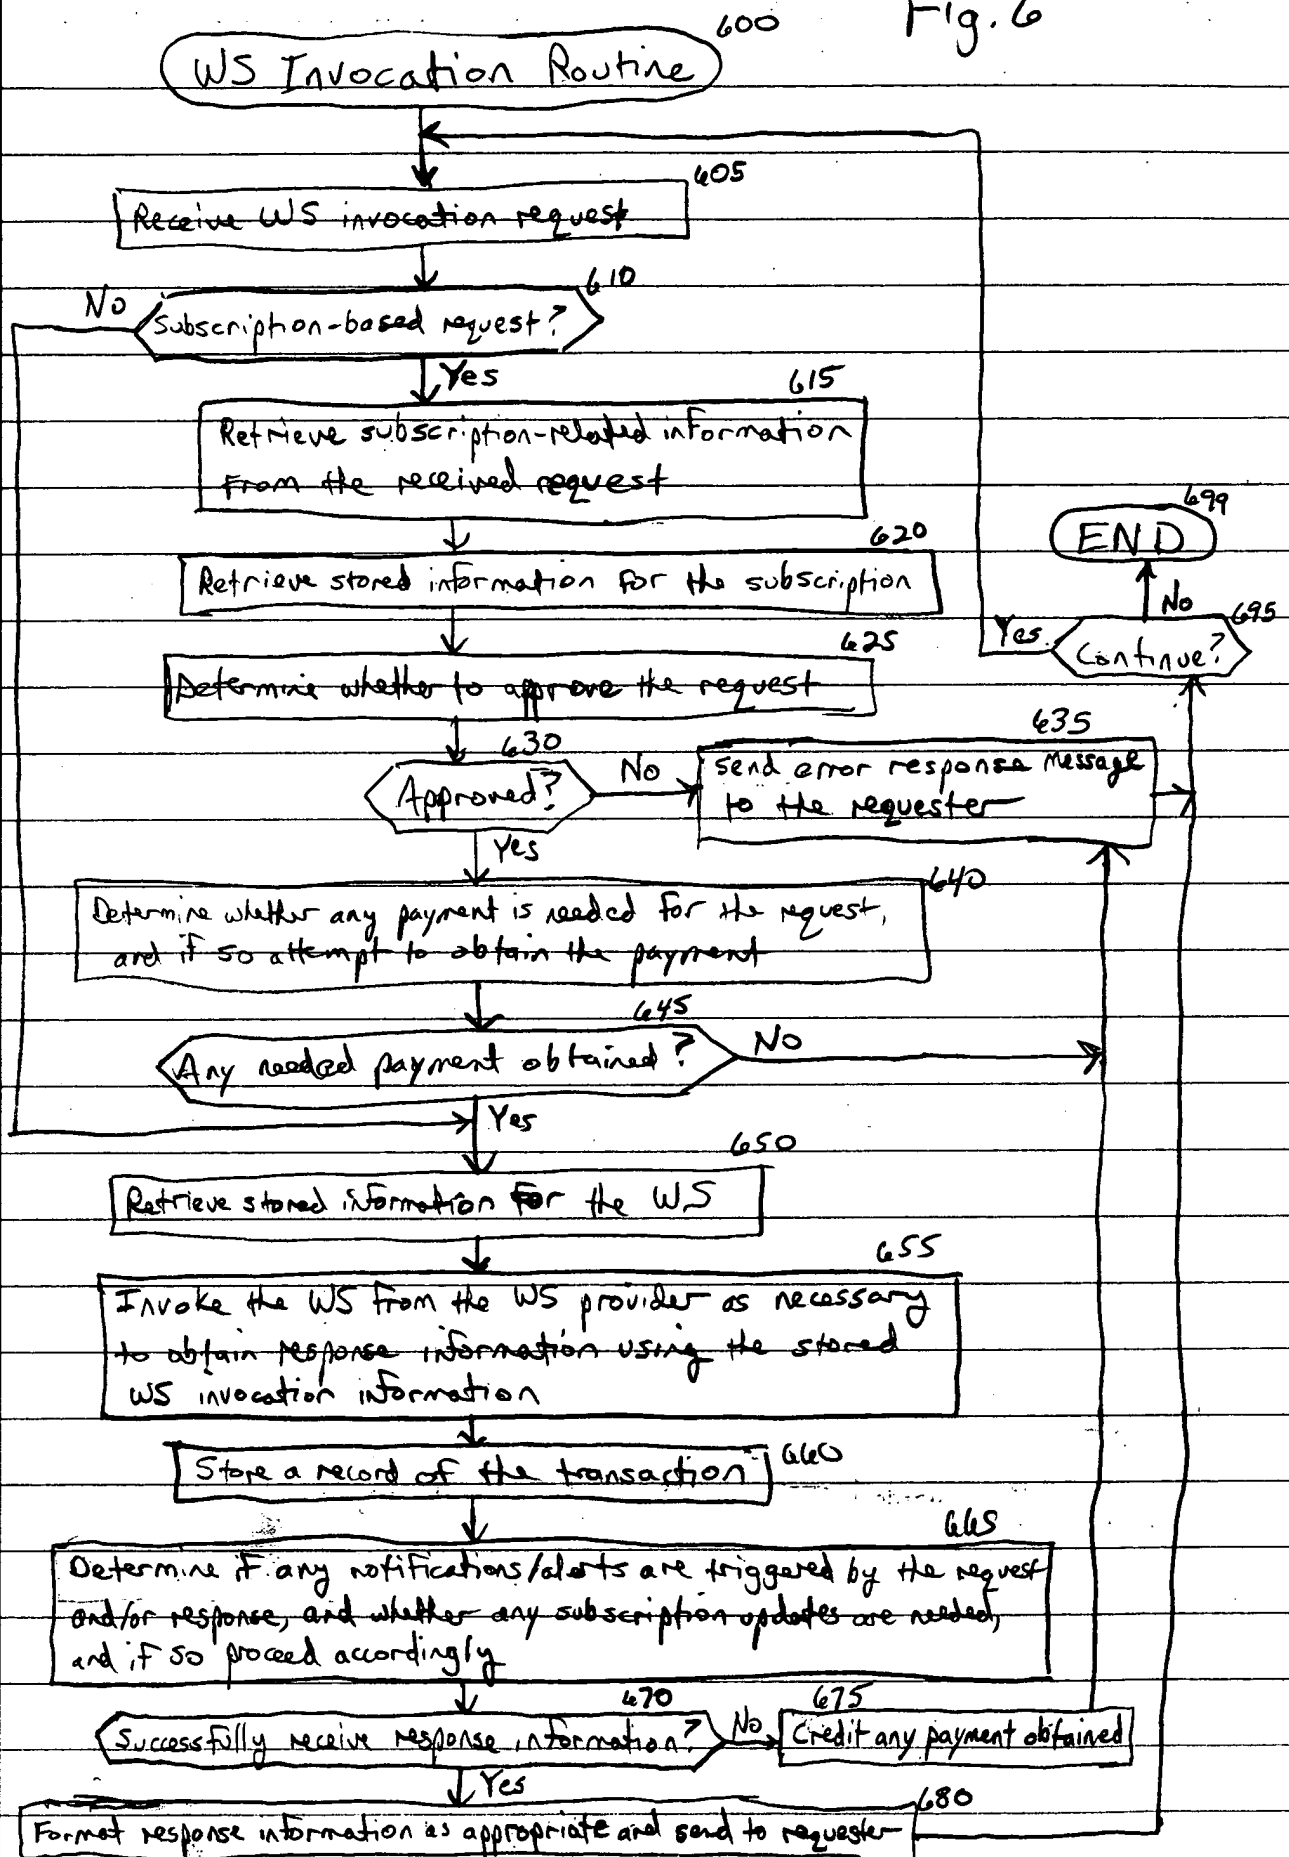 Fig. 6
600
WS Invocation Routine
605
Receive WS invocation request
610
No
Subscription-based request?
Yes
615
Retrieve subscription-related information
from the received request
620
Retrieve stored information for the subscription
699
END
No
695
Yes
Continue?
625
Determine whether to approve the request
630
Approved?
No
635
Send error response message
to the requester
Yes
640
Determine whether any payment is needed for the request,
and if so attempt to obtain the payment
645
Any needed payment obtained?
No
Yes
650
Retrieve stored information for the WS
655
Invoke the WS from the WS provider as necessary
to obtain response information using the stored
WS invocation information
660
Store a record of the transaction
665
Determine if any notifications/alerts are triggered by the request
and/or response, and whether any subscription updates are needed,
and if so proceed accordingly
670
Successfully receive response information?
No
675
Credit any payment obtained
Yes
680
Format response information as appropriate and send to requester